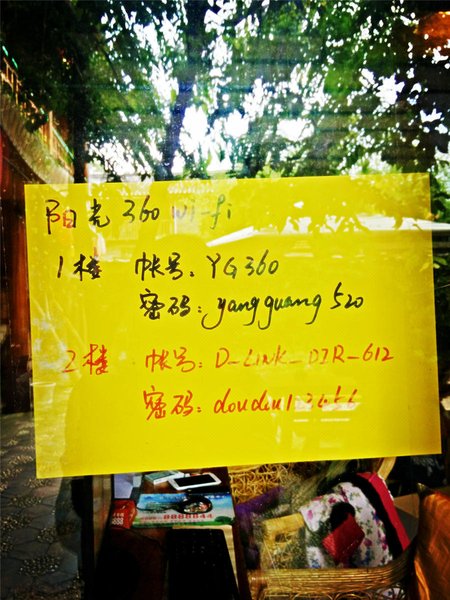 阳光360 Wi-fi
1楼 帐号：YG360
密码：yangguang520
2楼 帐号：D-Link_DIR-612
密码：
8888844